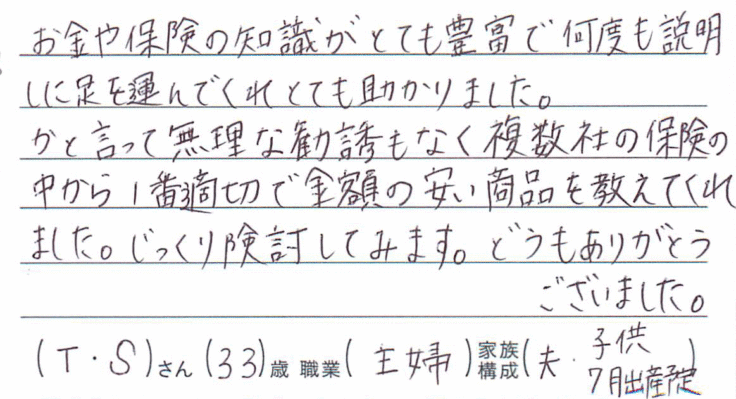 お金や保険の知識がとても豊富で何度も説明
しに足を運んでくれとても助かりました。
かと言って無理な勧誘もなく複数社の保険の
中から1番適切で金額の安い商品を教えてくれ
ました。じっくり険討してみます。どうもありがとう
ございました。
(T・S)さん(33)歳 職業(主婦)家族構成(夫・子供 7月出産予定)